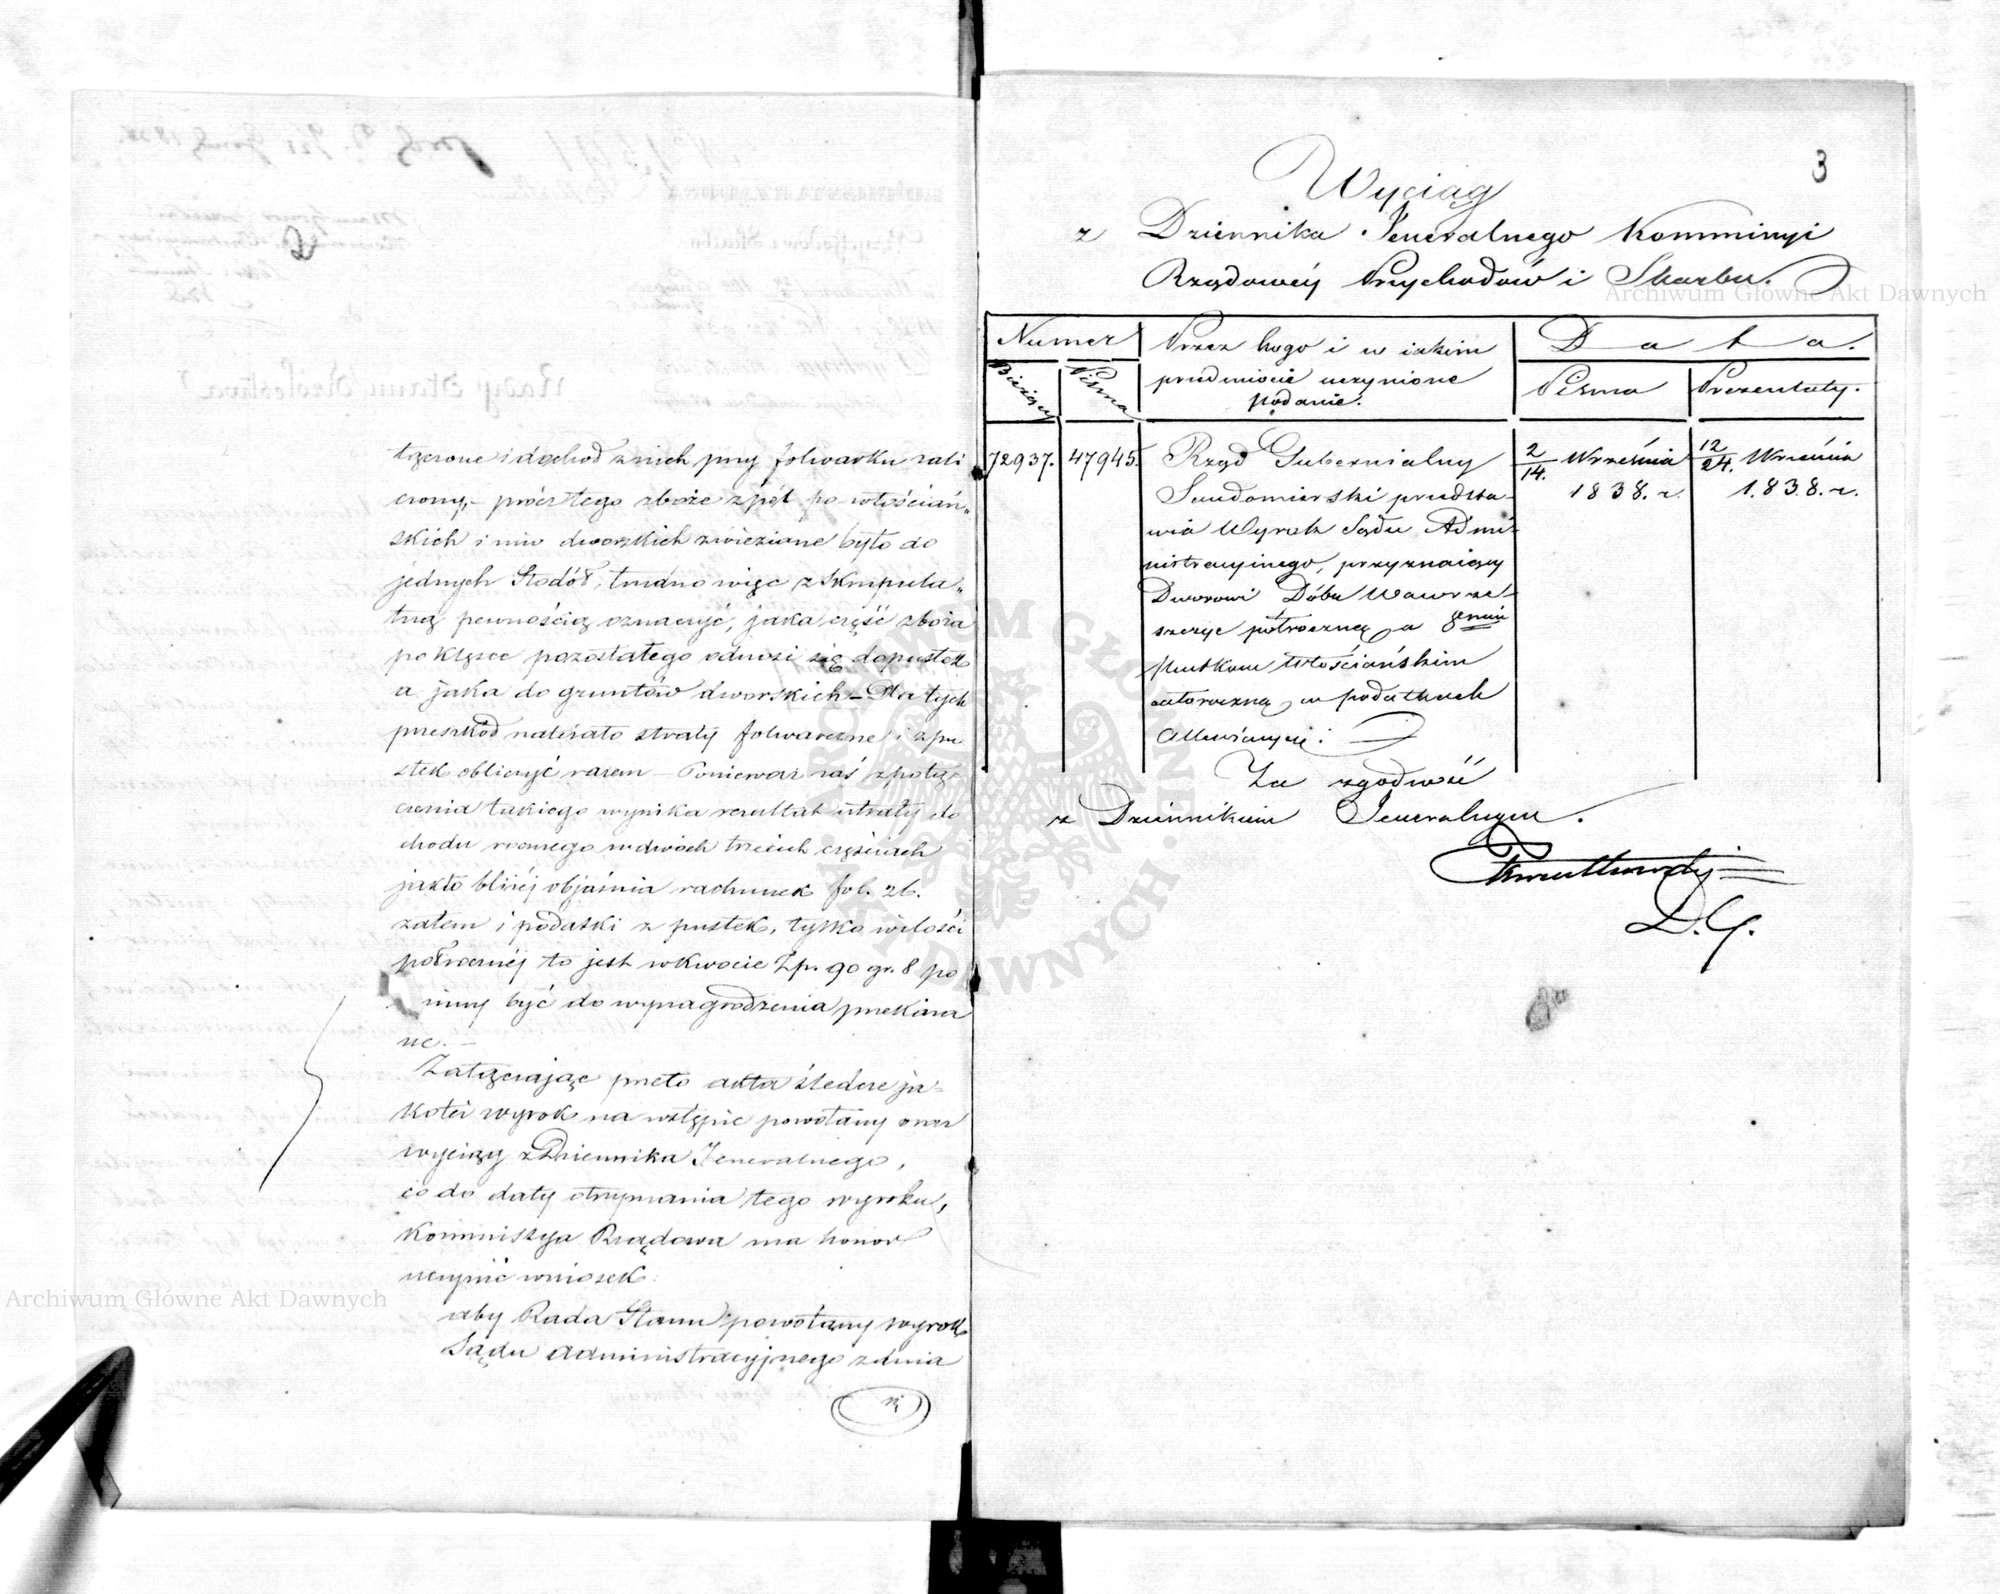 trzcone i dochod z nich przy folwarku zali
czony, – prócz tego zboże z pól po włościań„
skich i niw dworskich zwiezione było do
jednych Stodół, trudno więc z skrupula„
tną pewnością oznaczyć, jaka część zboża
po klęsce pozostałego odnosi się do pustek
a jaka do gruntów dworskich – Dla tych
przeszkód należało straty folwarczne i z pu
stek obliczyć razem – Ponieważ zaś z połą„
czenia takiego wynika rezultat utraty do
chodu rocznego w dwóch trzecich częściach
jak to bliżej objaśnia rachunek fol. 26.
zatem i podatki z pustek, tylko w ilości
półrocznéj to jest w kwocie Zp. 90 gr. 8 po
winny być do wynagrodzenia przekaza
ne. –
Załączając przeto akta śledcze ja„
koteż wyrok na wstępie powołany oraz
wyciąg z Dziennika Jeneralnego,
co do daty otrzymania tego wyroku,
Kommissya Rządowa ma honor
uczynić wniosek:
aby Rada Stanu powołany wyrok
Sądu administracyjnego z dnia
3
Wyciąg
z Dziennika Jeneralnego Kommissyi
Rządowéy Przychodów i Skarbu.
Numer
Bieżący
Pisma
Przez kogo i w jakim
przedmiocie uczynione
podanie.
Data.
Pisma
Prezentaty.
72937. 47945. Rząd Gubernialny 2/14. Września 12/24. Września
Sandomierski przedsta- 1838. r. 1.838. r.
wia Wyrok Sądu Admi-
nistracyinego, przyznaiący
Dworowi Dóbr Wawrze-
szczyc półroczną, a 8miu
Pustkom Włościańskim
całoroczną, w podatkach
allewiacyję.
Za zgodność
z Dziennikiem Jeneralnym.
D. G.
Archiwum Główne Akt Dawnych
Archiwum Główne Akt Dawnych
ARCHIWUM GŁÓWNE AKT DAWNYCH